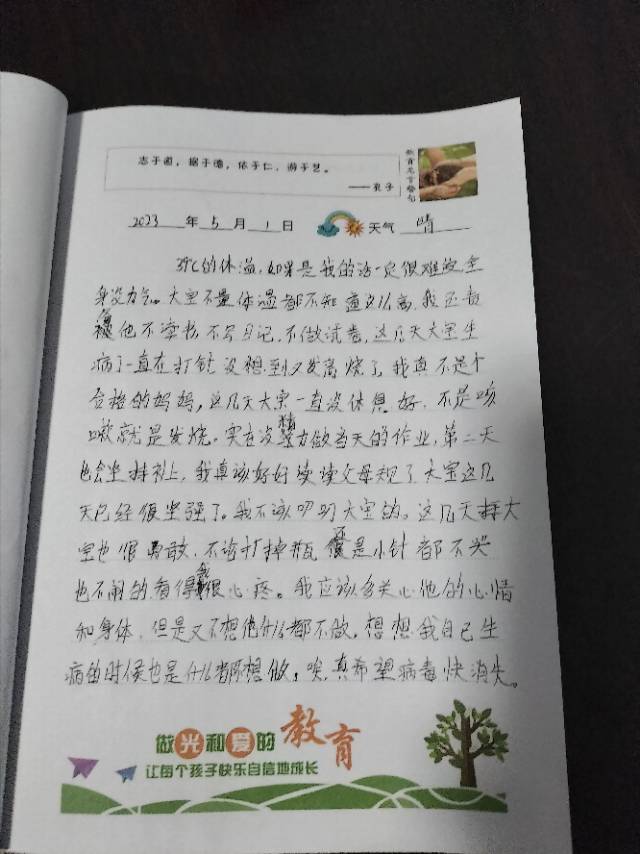 志于道，据于德，依于仁，游于艺。
——孔子
教育名言警句
2023 年 5 月 1 日 天气 晴
39℃的体温，如果是我的话一定很难受全
身没力气。大宝不量体温都不知道这么高，我还责
他不读书，不写日记，不做试卷，这几天大宝生
病了一直在打针 没想到又发高烧了，我真不是个
合格的妈妈，这几天大宝一直没休息好，不是咳
嗽就是发烧。实在没精力做当天的作业，第二天
也会坐 补上，我真该好好读读父母规了 大宝这几
天已经很坚强了。我不该叨叨大宝的。这几天 大
宝也很勇敢，不论打掉瓶 还是小针都不哭
也不闹的，看得我很心疼。我应该多关心他的心情
和身体，但是又不想他什么都不做。想想我自己生
病的时候也是什么都不想做。唉，真希望病毒快消失。
做光和爱的教育
让每个孩子快乐自信地成长